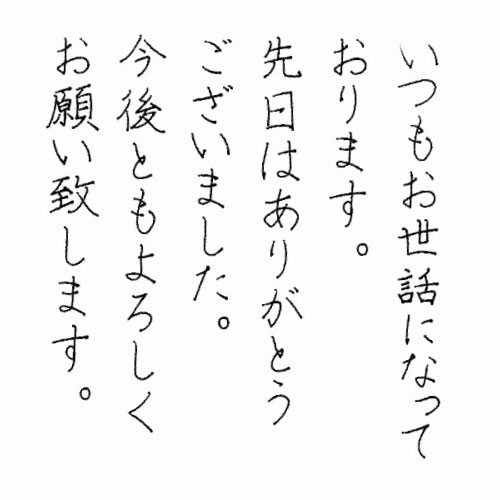 いつもお世話になって
おります。
先日はありがとう
ございました。
今後ともよろしく
お願い致します。